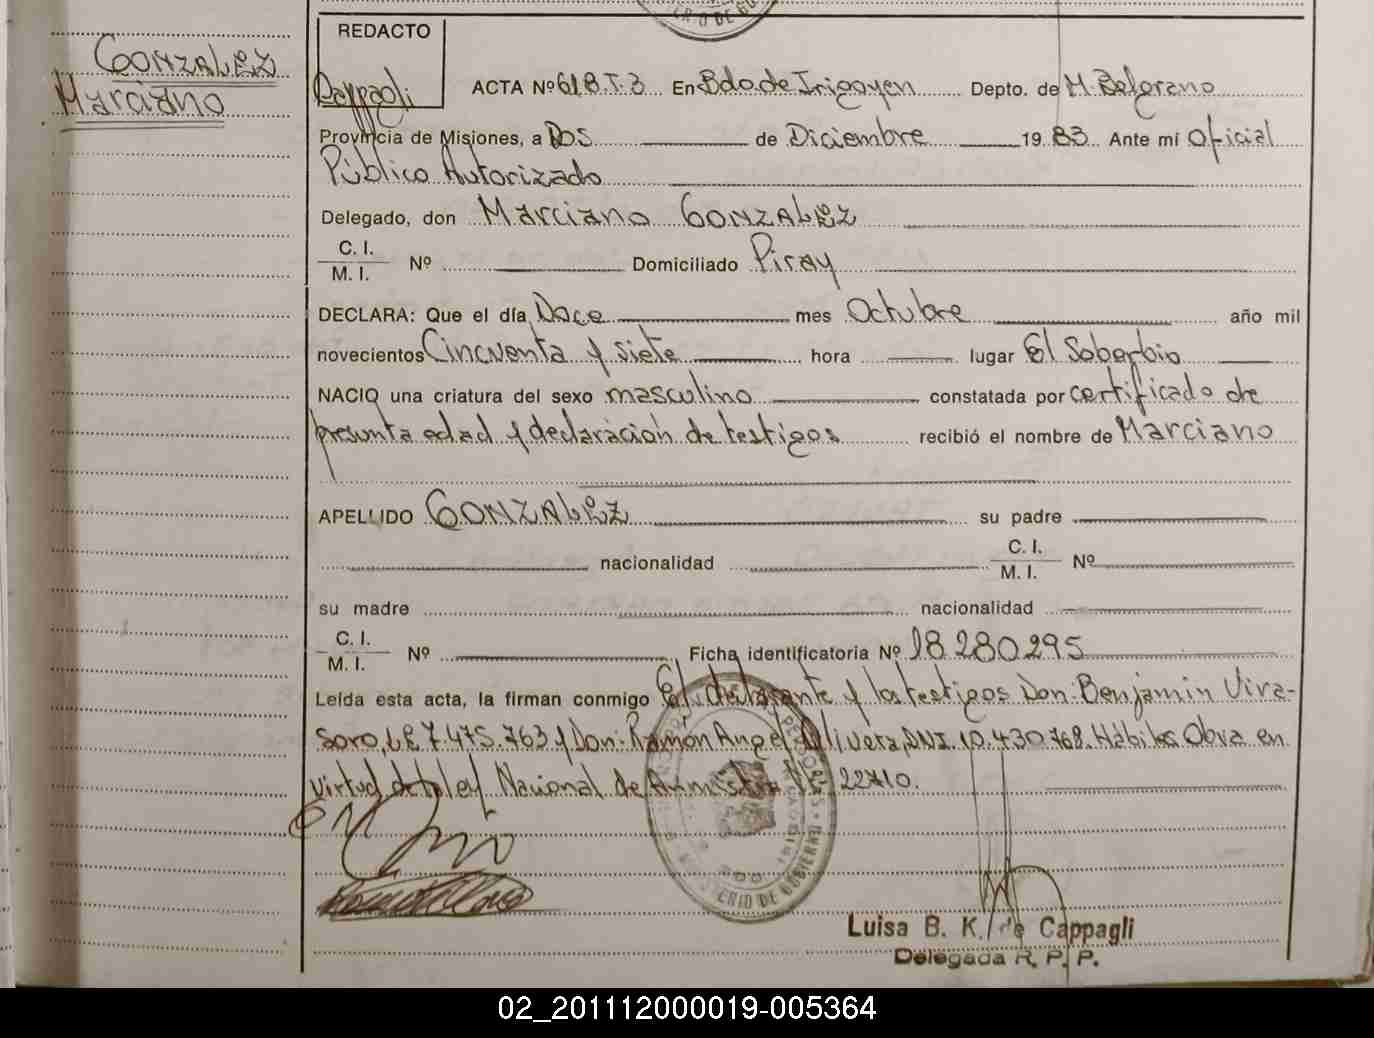 GONZALEZ
Marciano
REDACTO
Cappagli
ACTA Nº 618.T.3 En Bdo de Irigoyen Depto. de M. Belgrano
Provincia de Misiones, a Dos de Diciembre 1983 Ante mi Oficial
Público Autorizado
Delegado, don Marciano GONZALEZ
C. I.
M. I. Nº Domiciliado Piray
DECLARA: Que el día Doce mes Octubre año mil
novecientos Cincuenta y siete hora lugar El Soberbio
NACIO una criatura del sexo masculino constatada por certificado de
presunta edad y declaración de testigos recibió el nombre de Marciano
APELLIDO GONZALEZ su padre
nacionalidad C. I.
M. I. Nº
su madre nacionalidad
C. I.
M. I. Nº Ficha identificatoria Nº 18280295
Leída esta acta, la firman conmigo El declarante y los testigos Don: Benjamin Vira-
soro, LE 7.475.763 y Don: Ramón Angel Olivera, DNI. 10.430.768. Hábiles Obra en
virtud de la ley Nacional de Amnistía Nº 22410.
MINISTERIO DE GOBIERNO
Luisa B. K. de Cappagli
Delegada R. P. P.
02_201112000019-005364